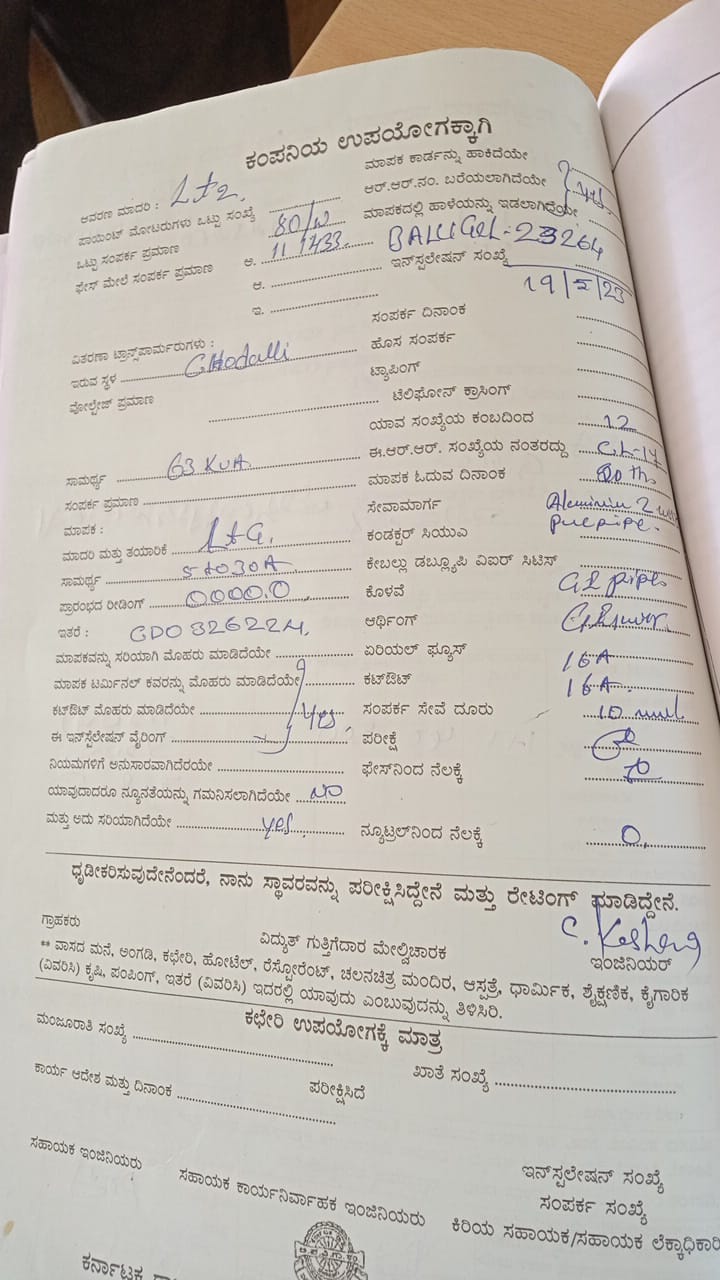 ಕಂಪನಿಯ ಉಪಯೋಗಕ್ಕಾಗಿ
ಆವರಣ ಮಾದರಿ : Lt2.
ಪಾಯಿಂಟ್ ಮೋಟರುಗಳು ಒಟ್ಟು ಸಂಖ್ಯೆ
ಒಟ್ಟು ಸಂಪರ್ಕ ಪ್ರಮಾಣ 80/w
ಫೇಸ್ ಮೇಲೆ ಸಂಪರ್ಕ ಪ್ರಮಾಣ ಆ.
ಆ.
ಇ.
ವಿತರಣಾ ಟ್ರಾನ್ಸ್‌ಪಾರ್ಮರುಗಳು :
ಇರುವ ಸ್ಥಳ
ವೋಲ್ಟೇಜ್ ಪ್ರಮಾಣ
ಸಾಮರ್ಥ್ಯ 63 KVA.
ಸಂಪರ್ಕ ಪ್ರಮಾಣ
ಮಾಪಕ :
ಮಾದರಿ ಮತ್ತು ತಯಾರಿಕೆ L&G.
ಸಾಮರ್ಥ್ಯ 5 to 30A
ಪ್ರಾರಂಭದ ರೀಡಿಂಗ್ 0000.0
ಇತರೆ :
ಮಾಪಕವನ್ನು ಸರಿಯಾಗಿ ಮೊಹರು ಮಾಡಿದೆಯೇ
ಮಾಪಕ ಟರ್ಮಿನಲ್ ಕವರನ್ನು ಮೊಹರು ಮಾಡಿದೆಯೇ
ಕಟ್‌ಔಟ್ ಮೊಹರು ಮಾಡಿದೆಯೇ Yes.
ಈ ಇನ್‌ಸ್ಟಲೇಷನ್ ವೈರಿಂಗ್
ನಿಯಮಗಳಿಗೆ ಅನುಸಾರವಾಗಿದೆರಯೇ
ಯಾವುದಾದರೂ ನ್ಯೂನತೆಯನ್ನು ಗಮನಿಸಲಾಗಿದೆಯೇ NO
ಮತ್ತು ಅದು ಸರಿಯಾಗಿದೆಯೇ yes.
ಮಾಪಕ ಕಾರ್ಡನ್ನು ಹಾಕಿದೆಯೇ
ಆರ್.ಆರ್.ನಂ. ಬರೆಯಲಾಗಿದೆಯೇ yes.
ಮಾಪಕದಲ್ಲಿ ಹಾಳೆಯನ್ನು ಇಡಲಾಗಿದೆಯೇ
ಇನ್‌ಸ್ಪಲೇಷನ್ ಸಂಖ್ಯೆ
ಸಂಪರ್ಕ ದಿನಾಂಕ
ಹೊಸ ಸಂಪರ್ಕ
ಟ್ಯಾಪಿಂಗ್
ಟೆಲಿಫೋನ್ ಕ್ರಾಸಿಂಗ್
ಯಾವ ಸಂಖ್ಯೆಯ ಕಂಬದಿಂದ 12
ಈ.ಆರ್.ಆರ್. ಸಂಖ್ಯೆಯ ನಂತರದ್ದು
ಮಾಪಕ ಓದುವ ದಿನಾಂಕ
ಸೇವಾಮಾರ್ಗ
ಕಂಡಕ್ಟರ್ ಸಿಯುಎ
ಕೇಬಲ್ಲು ಡಬ್ಲ್ಯೂಪಿ ವಿಐರ್ ಸಿಟಿಸ್
ಕೊಳವೆ
ಆರ್ಥಿಂಗ್
ಏರಿಯಲ್ ಫ್ಯೂಸ್ 16A
ಕಟ್‌ಔಟ್ 16A
ಸಂಪರ್ಕ ಸೇವೆ ದೂರು
ಪರೀಕ್ಷೆ
ಫೇಸ್‌ನಿಂದ ನೆಲಕ್ಕೆ
ನ್ಯೂಟ್ರಲ್‌ನಿಂದ ನೆಲಕ್ಕೆ 0.
ಧೃಡೀಕರಿಸುವುದೇನೆಂದರೆ, ನಾನು ಸ್ಥಾವರವನ್ನು ಪರೀಕ್ಷಿಸಿದ್ದೇನೆ ಮತ್ತು ರೇಟಿಂಗ್ ಮಾಡಿದ್ದೇನೆ.
ಗ್ರಾಹಕರು ವಿದ್ಯುತ್ ಗುತ್ತಿಗೆದಾರ ಮೇಲ್ವಿಚಾರಕ ಇಂಜಿನಿಯರ್
** ವಾಸದ ಮನೆ, ಅಂಗಡಿ, ಕಛೇರಿ, ಹೋಟೆಲ್, ರೆಸ್ಟೋರೆಂಟ್, ಚಲನಚಿತ್ರ ಮಂದಿರ, ಆಸ್ಪತ್ರೆ, ಧಾರ್ಮಿಕ, ಶೈಕ್ಷಣಿಕ, ಕೈಗಾರಿಕ
(ವಿವರಿಸಿ) ಕೃಷಿ, ಪಂಪಿಂಗ್, ಇತರೆ (ವಿವರಿಸಿ) ಇದರಲ್ಲಿ ಯಾವುದು ಎಂಬುವುದನ್ನು ತಿಳಿಸಿರಿ.
ಕಛೇರಿ ಉಪಯೋಗಕ್ಕೆ ಮಾತ್ರ
ಮಂಜೂರಾತಿ ಸಂಖ್ಯೆ ಖಾತೆ ಸಂಖ್ಯೆ
ಕಾರ್ಯ ಆದೇಶ ಮತ್ತು ದಿನಾಂಕ ಪರೀಕ್ಷಿಸಿದೆ
ಇನ್‌ಸ್ಪಲೇಷನ್ ಸಂಖ್ಯೆ
ಸಂಪರ್ಕ ಸಂಖ್ಯೆ
ಸಹಾಯಕ ಇಂಜಿನಿಯರು ಸಹಾಯಕ ಕಾರ್ಯನಿರ್ವಾಹಕ ಇಂಜಿನಿಯರು ಕಿರಿಯ ಸಹಾಯಕ/ಸಹಾಯಕ ಲೆಕ್ಕಾಧಿಕಾರಿ
ಕರ್ನಾಟಕ